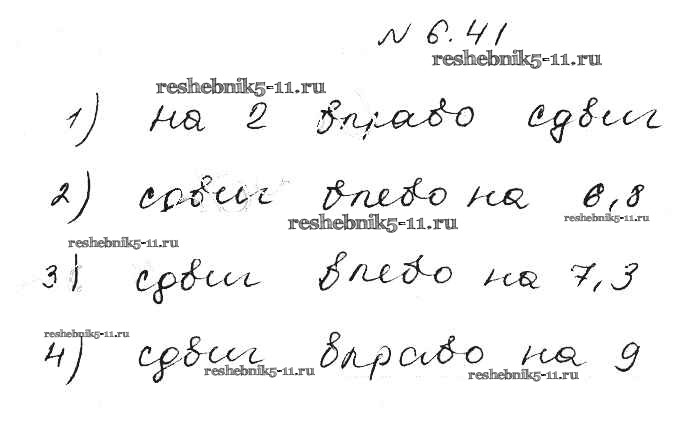 N 6.41
reshebnik5-11.ru
reshebnik5-11.ru
1) на 2 вправо сдвиг
2) сдвиг влево на 6,8
reshebnik5-11.ru
reshebnik5-11.ru
reshebnik5-11.ru
3) сдвиг влево на 7,3
reshebnik5-11.ru
4) сдвиг вправо на 9
reshebnik5-11.ru
reshebnik5-11.ru